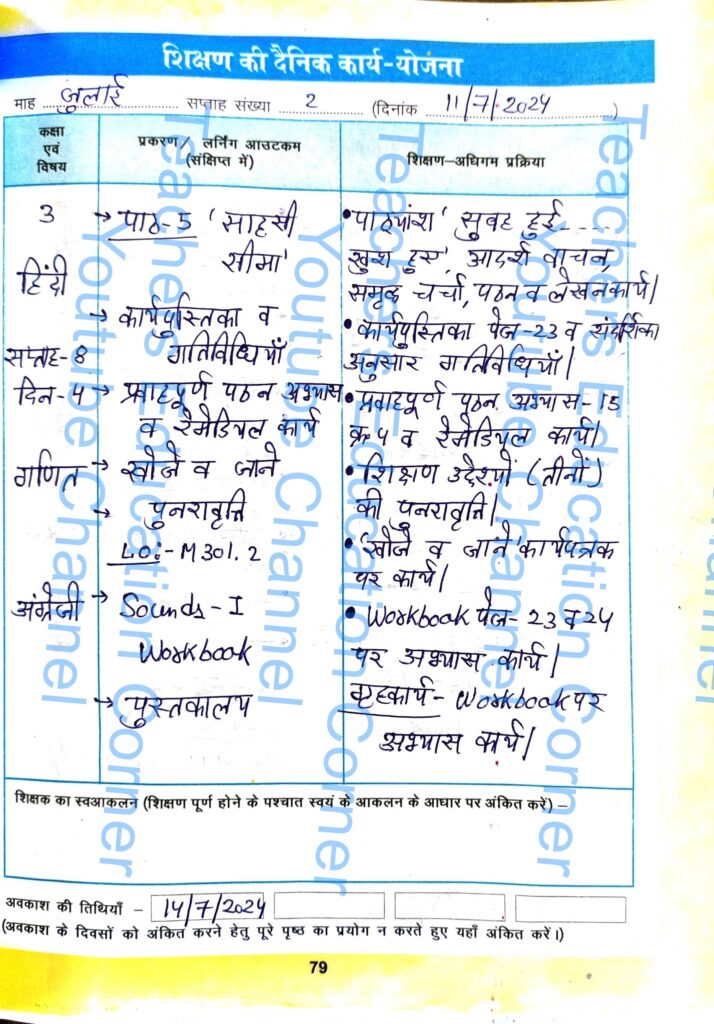 शिक्षण की दैनिक कार्य-योजना
माह जुलाई सप्ताह संख्या 2 (दिनांक 11/7/2024)
कक्षा एवं विषय
प्रकरण / लर्निंग आउटकम (संक्षिप्त में)
शिक्षण-अधिगम प्रक्रिया
3
हिंदी
सप्ताह-8
दिन-4
→ पाठ-5 'साहसी
सीमा'
→ कार्यपुस्तिका व
गतिविधियाँ
→ प्रवाहपूर्ण पठन अभ्यास
व रेमेडियल कार्य
• पाठ्यांश 'सुबह हुई.....
खुश हुए' आदर्श वाचन,
समृद्ध चर्चा, पठन व लेखन कार्य|
• कार्यपुस्तिका पेज-23 व संदर्शिका
अनुसार गतिविधियाँ|
• प्रवाहपूर्ण पठन अभ्यास-15
क्र 4 व रेमेडियल कार्य|
गणित
→ खोजें व जाने
→ पुनरावृत्ति
LO:- M301.2
• शिक्षण उद्देश्यों (तीनों)
की पुनरावृत्ति|
• 'खोजें व जाने' कार्यपत्रक
पर कार्य|
अंग्रेजी
Sounds-I
Workbook
→ पुस्तकालय
• Workbook पेज-23 व 24
पर अभ्यास कार्य|
गृहकार्य- Workbook पर
अभ्यास कार्य|
शिक्षक का स्वआकलन (शिक्षण पूर्ण होने के पश्चात स्वयं के आकलन के आधार पर अंकित करें) –
अवकाश की तिथियाँ – 14/7/2024
(अवकाश के दिवसों को अंकित करने हेतु पूरे पृष्ठ का प्रयोग न करते हुए यहाँ अंकित करें।)
79
Teachers Education Corner
Youtube Channel
Teachers Education Corner
Youtube Channel
Teachers Education Corner
Youtube Channel